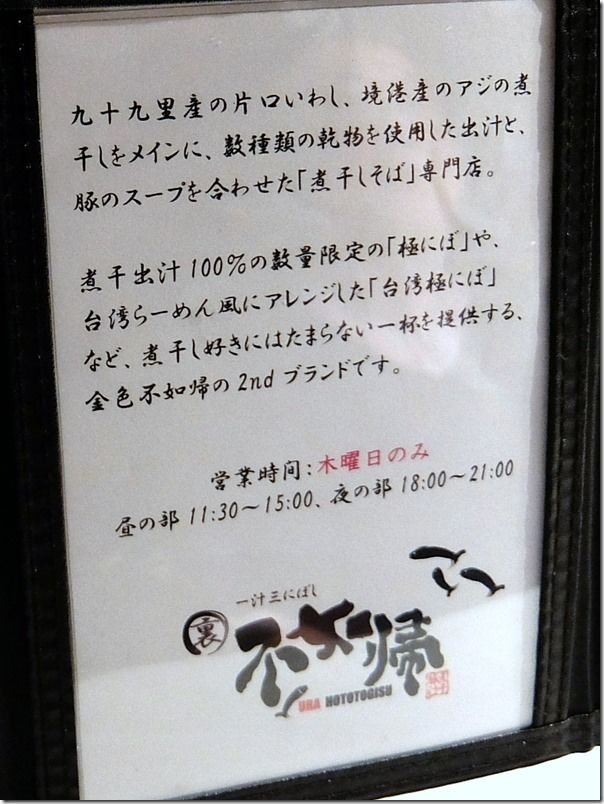 九十九里産の片口いわし、境港産のアジの煮
干しをメインに、数種類の乾物を使用した出汁と、
豚のスープを合わせた「煮干しそば」専門店。
煮干出汁100%の数量限定の「極にぼ」や、
台湾らーめん風にアレンジした「台湾極にぼ」
など、煮干し好きにはたまらない一杯を提供する、
金色不如帰の2ndブランドです。
営業時間:木曜日のみ
昼の部 11:30〜15:00、夜の部 18:00〜21:00
一汁三にぼし
裏 不如帰
URA HOTOTOGISU